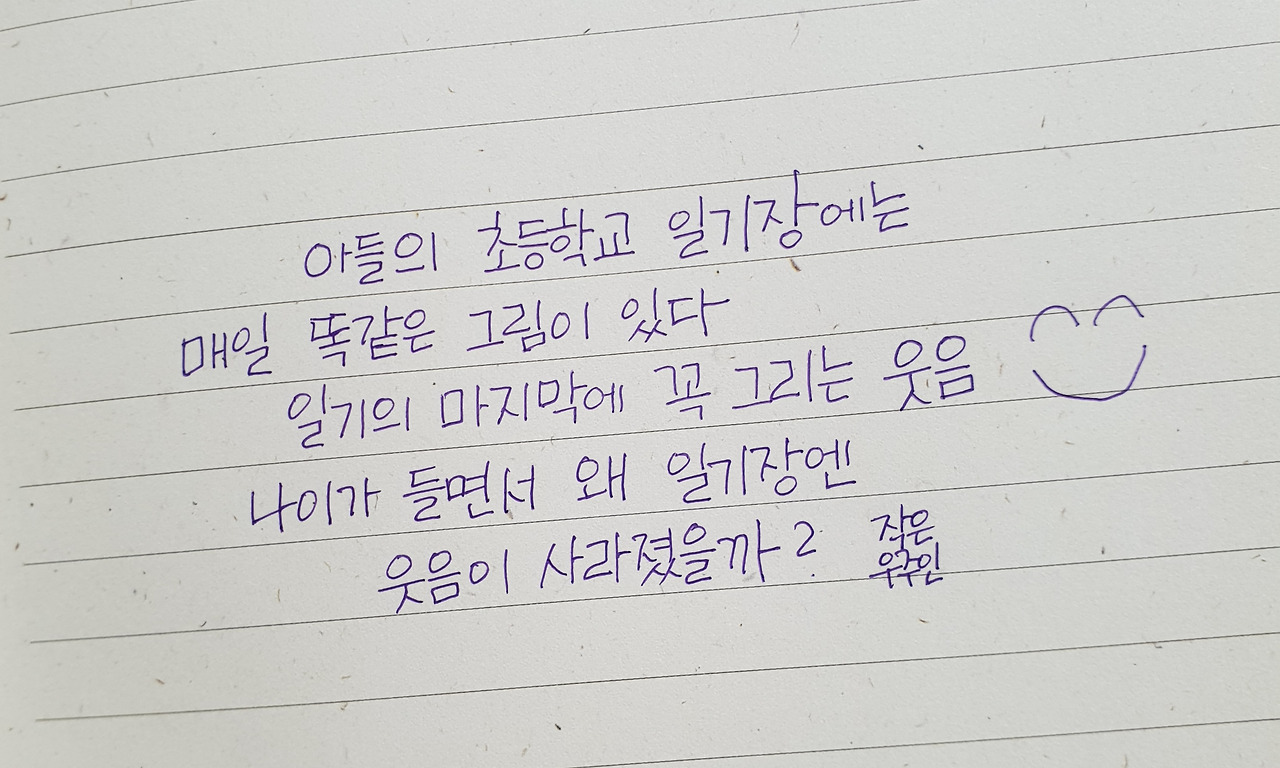 아들의 초등학교 일기장에는
매일 똑같은 그림이 있다
일기의 마지막에 꼭 그리는 웃음
나이가 들면서 왜 일기장엔
웃음이 사라졌을까?
작은
우주인